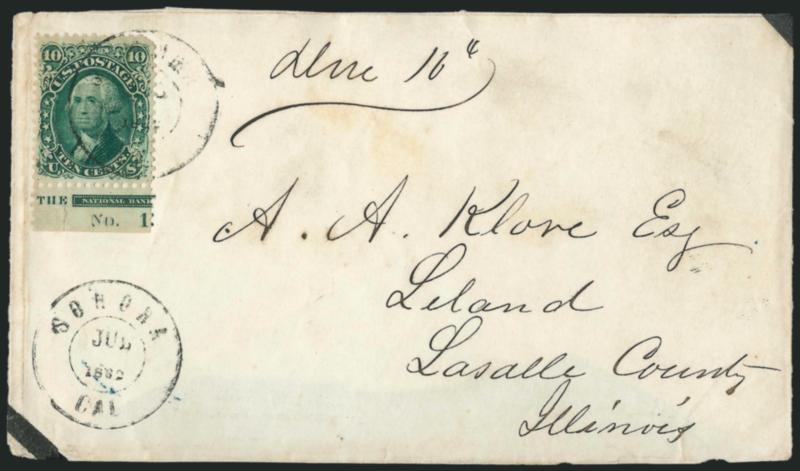 10 10
U.S. POSTAGE
TEN CENTS.
U S
THE NATIONAL BANK
No. 1
Due 10¢
A. A. Klove Esq
Leland
Lasalle County
Illinois
SONORA
JUL
1862
CAL